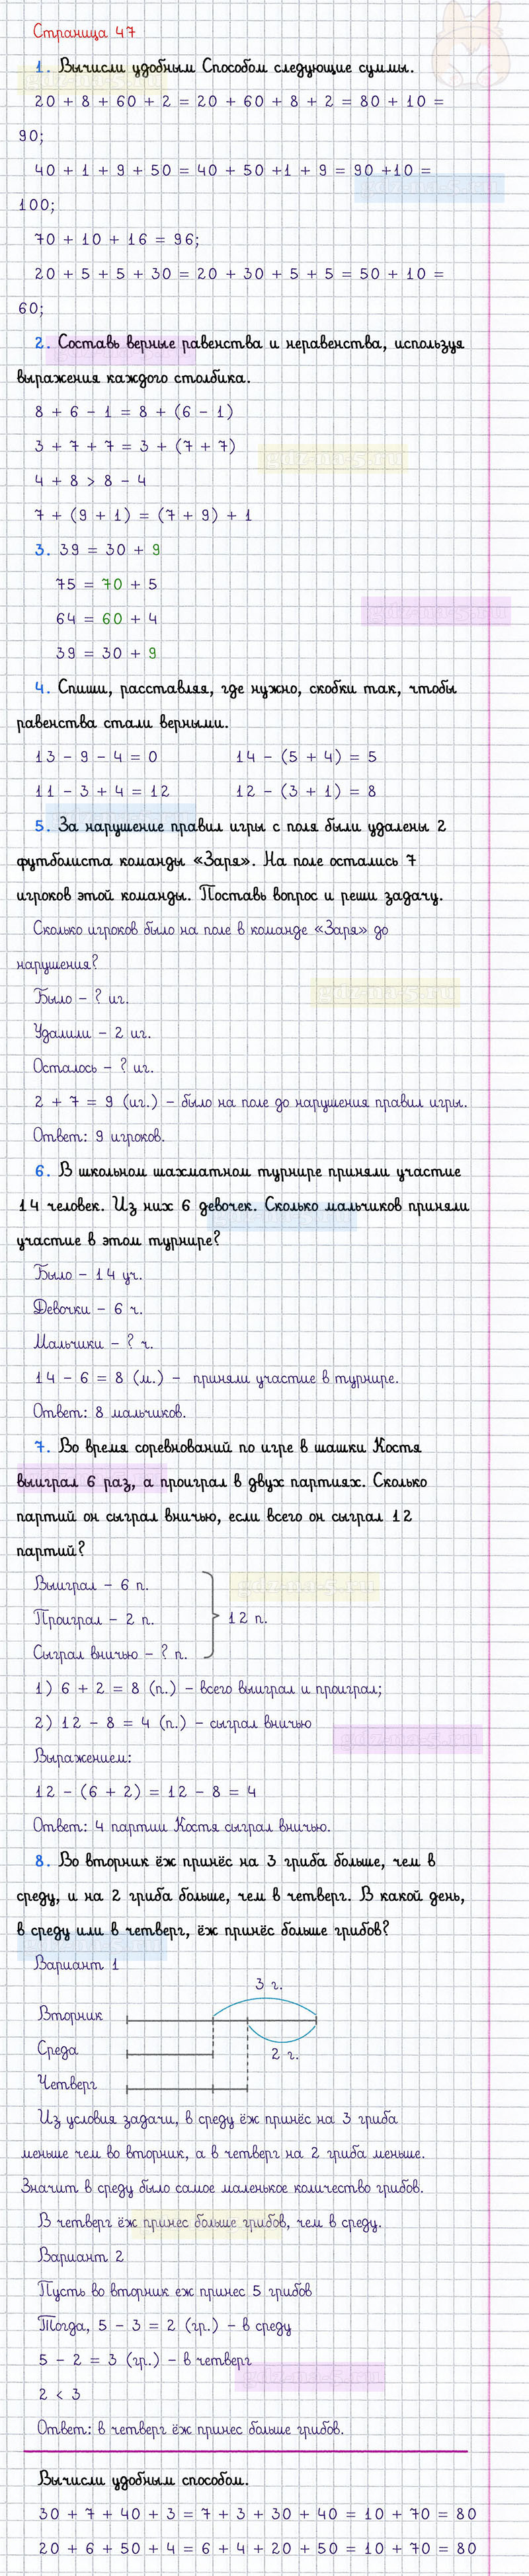 Страница 47
1. Вычисли удобным Способом следующие суммы.
20 + 8 + 60 + 2 = 20 + 60 + 8 + 2 = 80 + 10 =
90;
40 + 1 + 9 + 50 = 40 + 50 +1 + 9 = 90 +10 =
100;
70 + 10 + 16 = 96;
20 + 5 + 5 + 30 = 20 + 30 + 5 + 5 = 50 + 10 =
60;
2. Составь верные равенства и неравенства, используя
выражения каждого столбика.
8 + 6 - 1 = 8 + (6 - 1)
3 + 7 + 7 = 3 + (7 + 7)
4 + 8 > 8 - 4
7 + (9 + 1) = (7 + 9) + 1
3. 39 = 30 + 9
75 = 70 + 5
64 = 60 + 4
39 = 30 + 9
4. Спиши, расставляя, где нужно, скобки так, чтобы
равенства стали верными.
13 - 9 - 4 = 0 14 - (5 + 4) = 5
11 - 3 + 4 = 12 12 - (3 + 1) = 8
5. За нарушение правил игры с поля были удалены 2
футболиста команды «Заря». На поле остались 7
игроков этой команды. Поставь вопрос и реши задачу.
Сколько игроков было на поле в команде «Заря» до
нарушения?
Было - ? иг.
Удалили - 2 иг.
Осталось - ? иг.
2 + 7 = 9 (иг.) - было на поле до нарушения правил игры.
Ответ: 9 игроков.
6. В школьном шахматном турнире приняли участие
14 человек. Из них 6 девочек. Сколько мальчиков приняли
участие в этом турнире?
Было - 14 уч.
Девочки - 6 ч.
Мальчики - ? ч.
14 - 6 = 8 (м.) - приняли участие в турнире.
Ответ: 8 мальчиков.
7. Во время соревнований по игре в шашки Костя
выиграл 6 раз, а проиграл в двух партиях. Сколько
партий он сыграл вничью, если всего он сыграл 12
партий?
Выиграл - 6 п.
Проиграл - 2 п. 12 п.
Сыграл вничью - ? п.
1) 6 + 2 = 8 (п.) - всего выиграл и проиграл;
2) 12 - 8 = 4 (п.) - сыграл вничью
Выражением:
12 - (6 + 2) = 12 - 8 = 4
Ответ: 4 партии Костя сыграл вничью.
8. Во вторник ёж принёс на 3 гриба больше, чем в
среду, и на 2 гриба больше, чем в четверг. В какой день,
в среду или в четверг, ёж принёс больше грибов?
Вариант 1
3 г.
Вторник
Среда 2 г.
Четверг
Из условия задачи, в среду ёж принёс на 3 гриба
меньше чем во вторник, а в четверг на 2 гриба меньше.
Значит в среду было самое маленькое количество грибов.
В четверг ёж принес больше грибов, чем в среду.
Вариант 2
Пусть во вторник еж принес 5 грибов
Тогда, 5 - 3 = 2 (гр.) - в среду
5 - 2 = 3 (гр.) - в четверг
2 < 3
Ответ: в четверг ёж принес больше грибов.
Вычисли удобным способом.
30 + 7 + 40 + 3 = 7 + 3 + 30 + 40 = 10 + 70 = 80
20 + 6 + 50 + 4 = 6 + 4 + 20 + 50 = 10 + 70 = 80